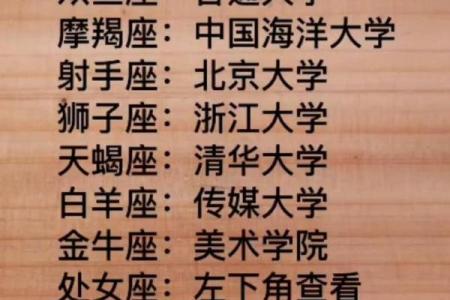 摩羯座：中国海洋大学
射手座：北京大学
狮子座：浙江大学
天蝎座：清华大学
白羊座：传媒大学
金牛座：美术学院
处女座：左下角查看